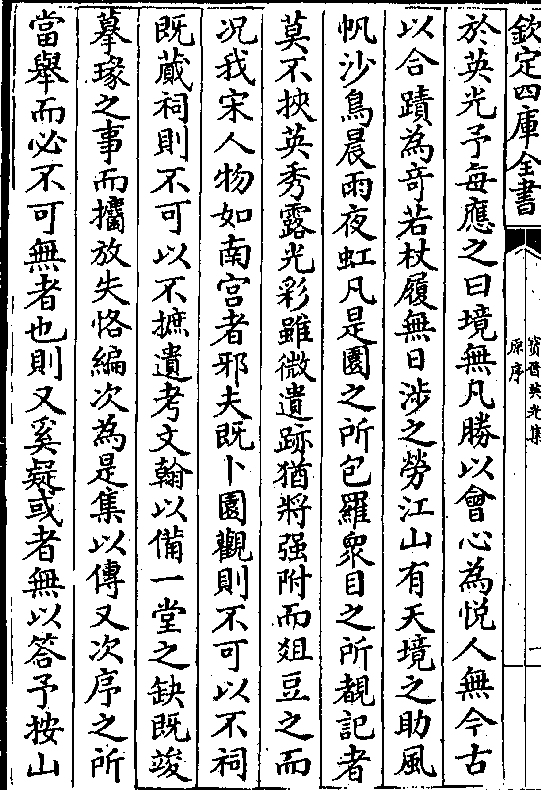 欽定四庫全書
寶晉英光集
原序
一
於英光予每應之曰境無凡勝以會心為悅人無今古
以合蹟為竒若杖履無日涉之勞江山有天境之助風
帆沙鳥晨雨夜虹凡是園之所包羅衆目之所覩記者
莫不挾英秀露光彩雖微遺跡猶將强附而爼豆之而
况我宋人物如南宫者邪夫既卜園觀則不可以不祠
既蕆祠則不可以不摭遺考文翰以備一堂之缺既竣
摹瑑之事而攟放失恪編次為是集以傳又次序之所
當舉而必不可無者也則又奚疑或者無以答予按山